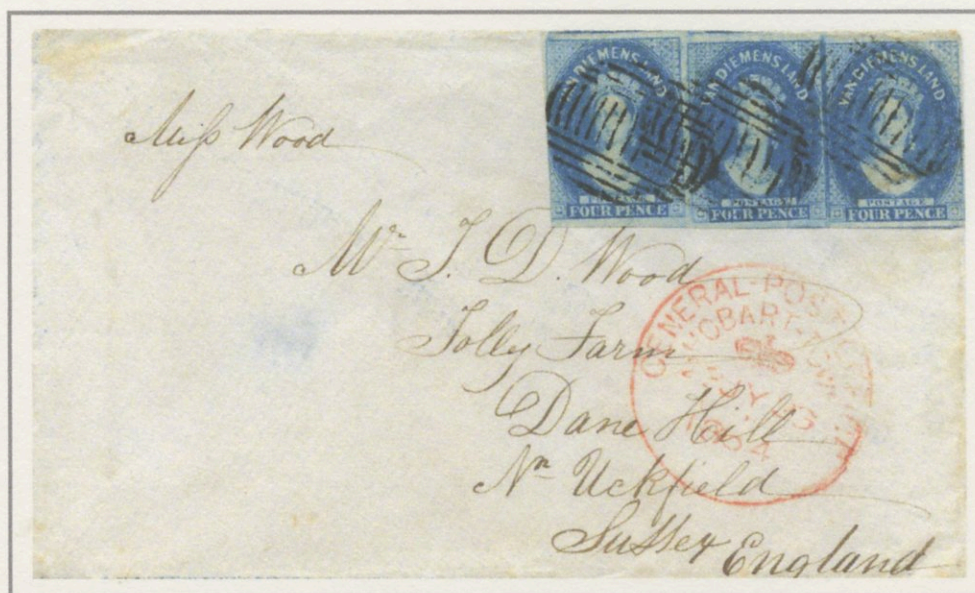 VAN DIEMENS LAND
POSTAGE
FOUR PENCE
VAN DIEMENS LAND
POSTAGE
FOUR PENCE
VAN DIEMENS LAND
POSTAGE
FOUR PENCE
Miſs Wood
Mr J. D. Wood
Jolly Farm
Dane Hill
Nr Uckfield
Sussex England
GENERAL-POST
HOBART-TOWN
1854